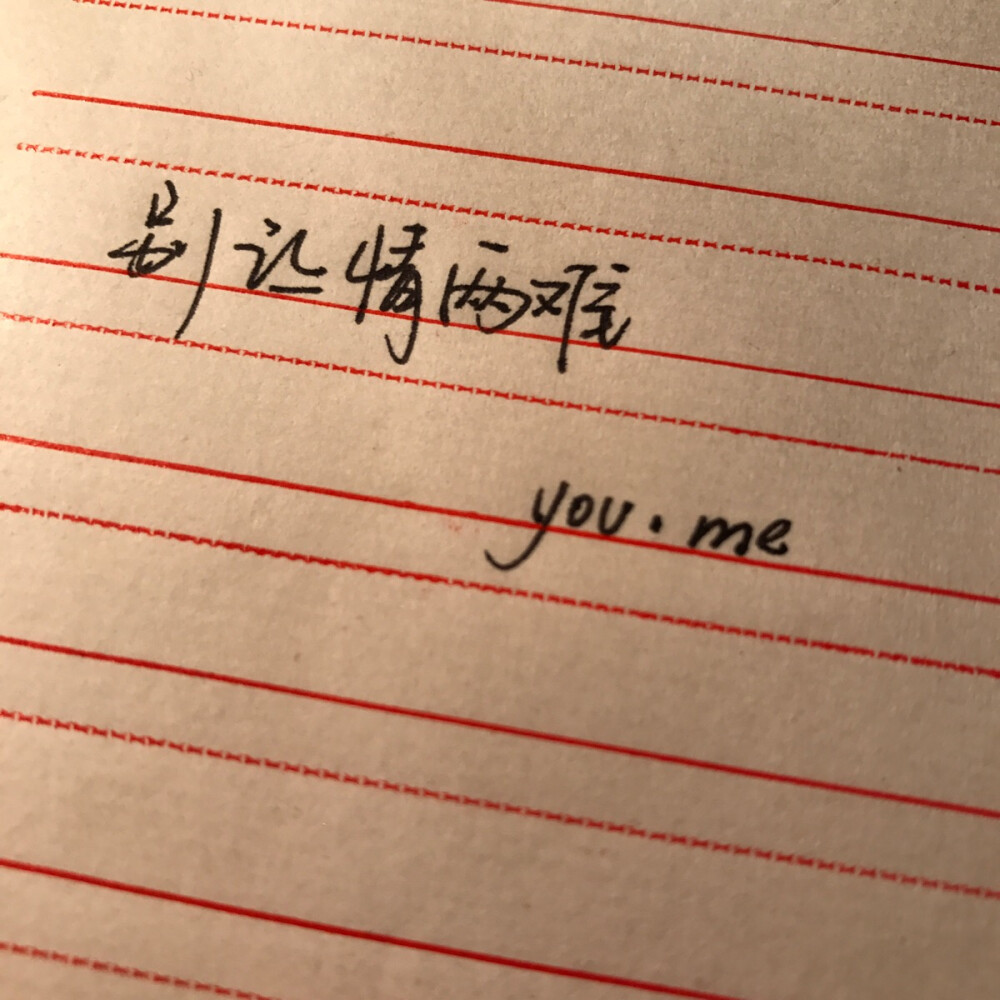 别让情两难
you.me